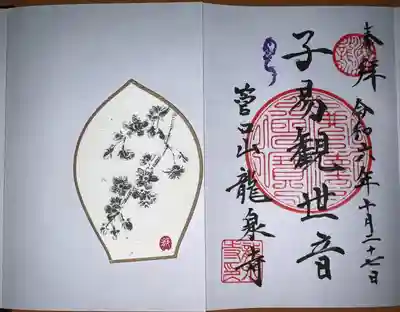 奉拝 令和六年十月二十七日
子易觀世音
菅口山龍泉寺